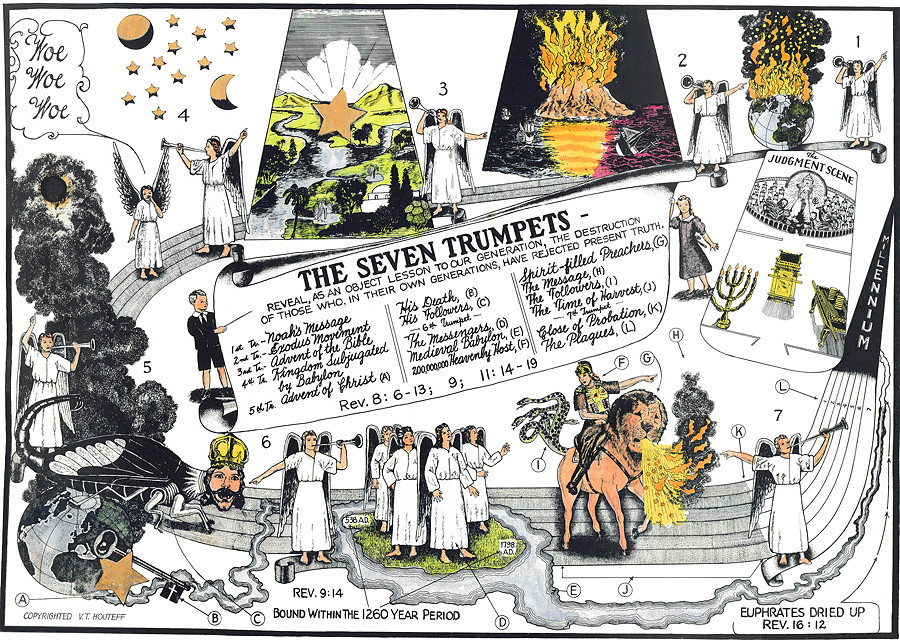 Woe
Woe
Woe
4
3
2
1
The
JUDGMENT SCENE
MILLENNIUM
THE SEVEN TRUMPETS -
REVEAL, AS AN OBJECT LESSON TO OUR GENERATION, THE DESTRUCTION
OF THOSE WHO, IN THEIR OWN GENERATIONS, HAVE REJECTED PRESENT TRUTH.
1st Tr.- Noah's Message
2nd Tr.- Exodus Movement
3rd Tr.- Advent of the Bible
4th Tr. Kingdom Subjugated
by Babylon
5th Tr. Advent of Christ (A)
His Death, (B)
His Followers, (C)
- 6th Trumpet -
The Messengers, (D)
Medieval Babylon, (E)
200,000,000 Heavenly Host, (F)
Spirit-filled Preachers, (G)
The Message, (H)
The Followers, (I)
The Time of Harvest, (J)
- 7th Trumpet -
Close of Probation, (K)
The Plagues, (L)
Rev. 8: 6-13; 9; 11: 14-19
5
6
7
F
G
H
I
K
L
538 A.D.
1798
A.D.
A
B
C
D
E
J
REV. 9:14
BOUND WITHIN THE 1260 YEAR PERIOD
COPYRIGHTED V.T. HOUTEFF
EUPHRATES DRIED UP
REV. 16:12